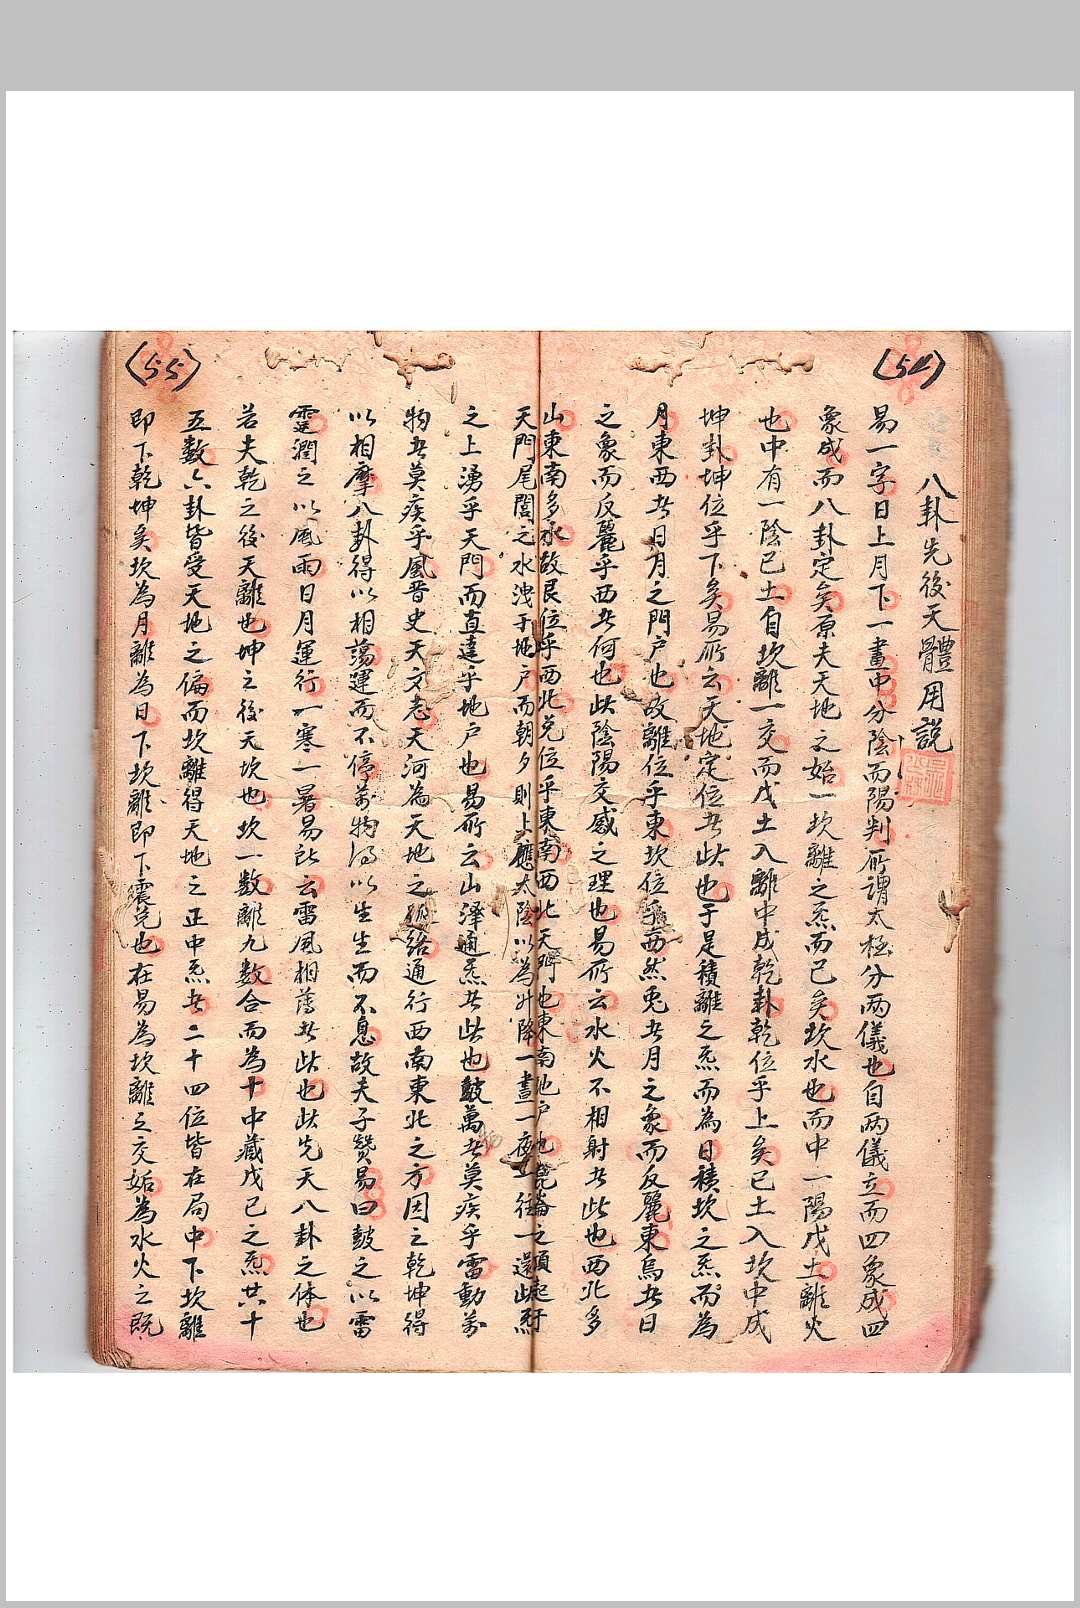 (54)
八卦先後天體用說
易一字日上月下一畫中分陰而陽判所謂太極分兩儀也自兩儀立而四象成四
象成而八卦定矣原夫天地之始一坎離之炁而已矣坎水也而中一陽戊土離火
也中有一陰已土自坎離一交而戊土入離中成乾卦乾位乎上矣已土入坎中成
坤卦坤位乎下矣易所云天地定位者此也于是積離之炁而為日積坎之炁而為
月東西者日月之門戶也故離位乎東坎位乎西然兎者月之象而反麗東烏者日
之象而反麗乎西者何也此陰陽交感之理也易所云水火不相射者此也西北多
山東南多水故艮位乎西北兌位乎東南西北天門也東南地戶也崑崙之頂起于
天門尾閭之水洩于地戶而朝夕則上應太陰以為升降一晝一夜一往一還此炁
之上湧乎天門而直達乎地戶也易所云山澤通炁者此也皷萬者莫疾乎雷動萬
物者莫疾乎風晉史天文志天河為天地之脈絡通行西南東北之方因之乾坤得
以相摩八卦得以相蕩運而不停萬物得以生生而不息故夫子贊易曰皷之以雷
霆潤之以風雨日月運行一寒一暑易所云雷風相薄者此也此先天八卦之体也
若夫乾之後天離也坤之後天坎也坎一數離九數合而為十中藏戊已之炁共十
五數六卦皆受天地之偏而坎離得天地之正中炁者二十四位皆在局中下坎離
即下乾坤矣坎為月離為日下坎離即下震兌也在易為坎離之交姤為水火之既
(55)